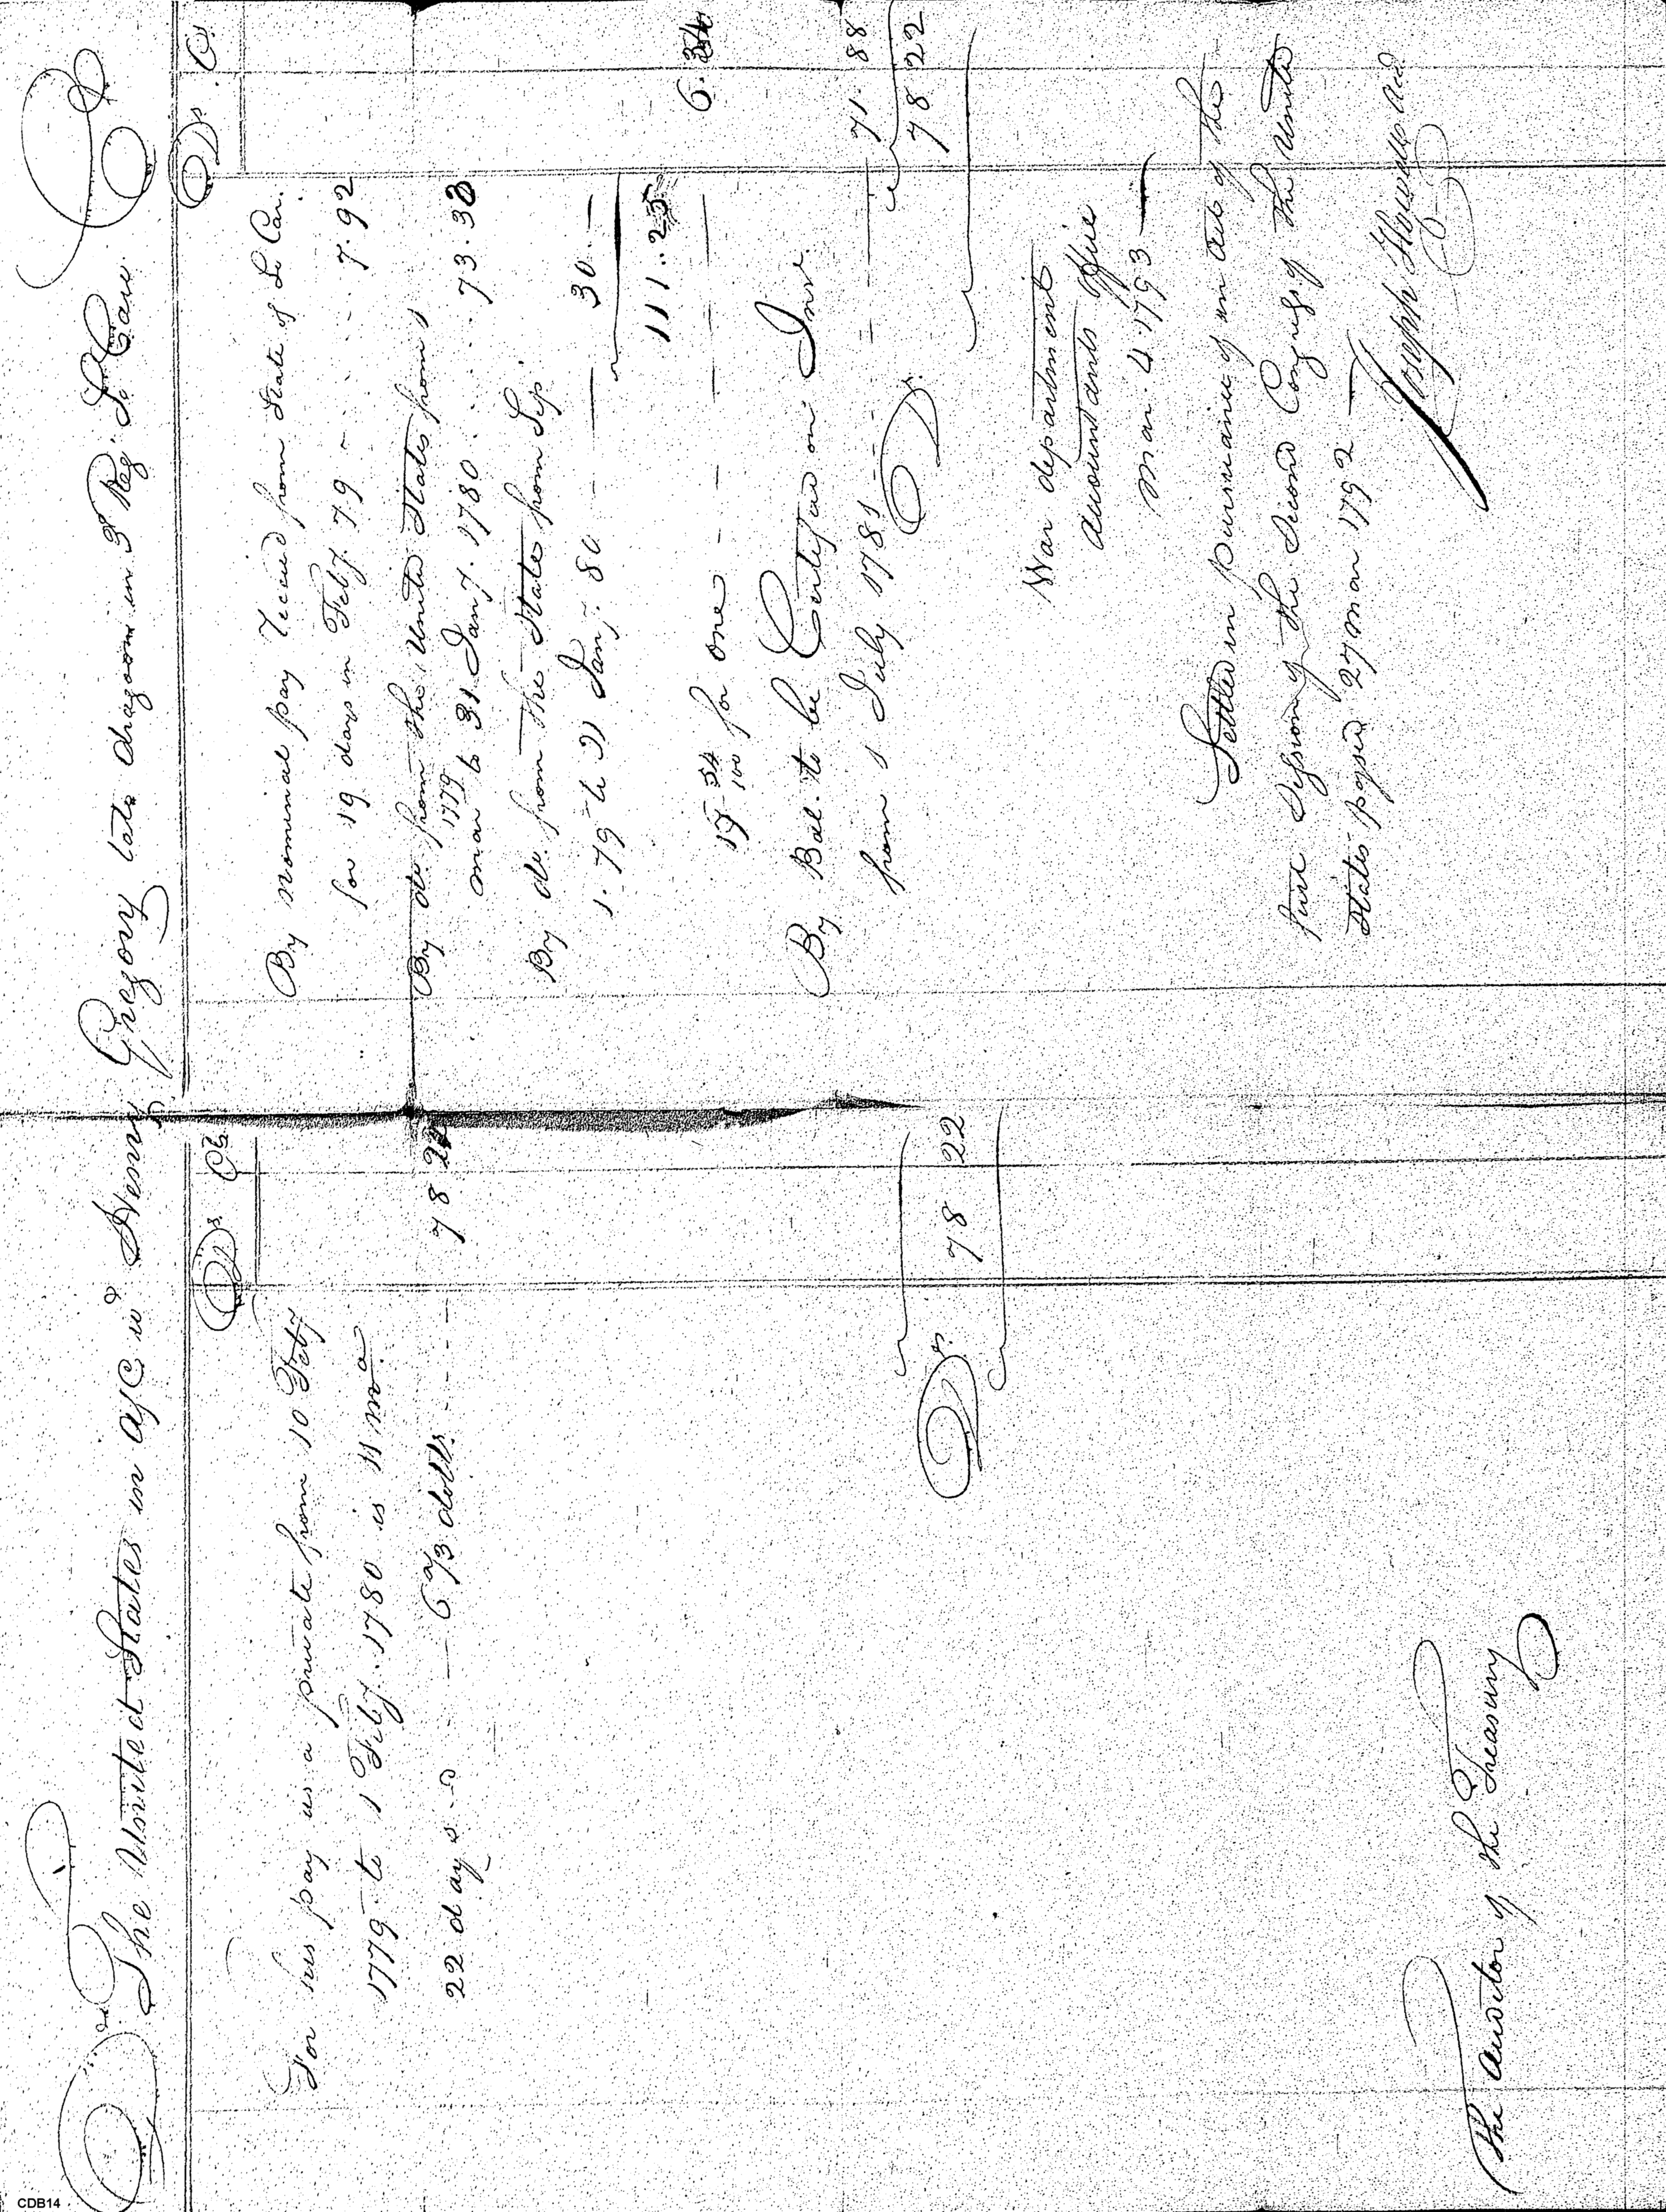 Dr. The United States in a/c wh. Henry Gregory late dragoon in 3d Reg. So Caro. Cr
Ds. Cts.
For his pay as a private from 10 Feby
1779 to 1 Feby. 1780 is 11 mo.
22 days a 6 2/3 dolls. 78 22
Ds. 78 22
The Auditor of the Treasury
Ds. C.
By nominal pay receivd from State of So Car.
for 19 days in Feby 79 - 7.92
By do. from the United States from 1
mar 1779 to 31 Jany. 1780 73.33
By do. from the State from Sep.
1. 79 to 31 Jany. 80 30.—
111.25
17 54/100 for one 6.34
By Bal. to be Certified on Int.
from 1 July 1781 71.88
Ds. 78 22
War department
Accountants Office
Mar. 4 1793
Settled in pursuance of an act of the
first Session of the Second Congress of the United
States passed 27 Mar 1792
Joseph Howell Acct
CDB14